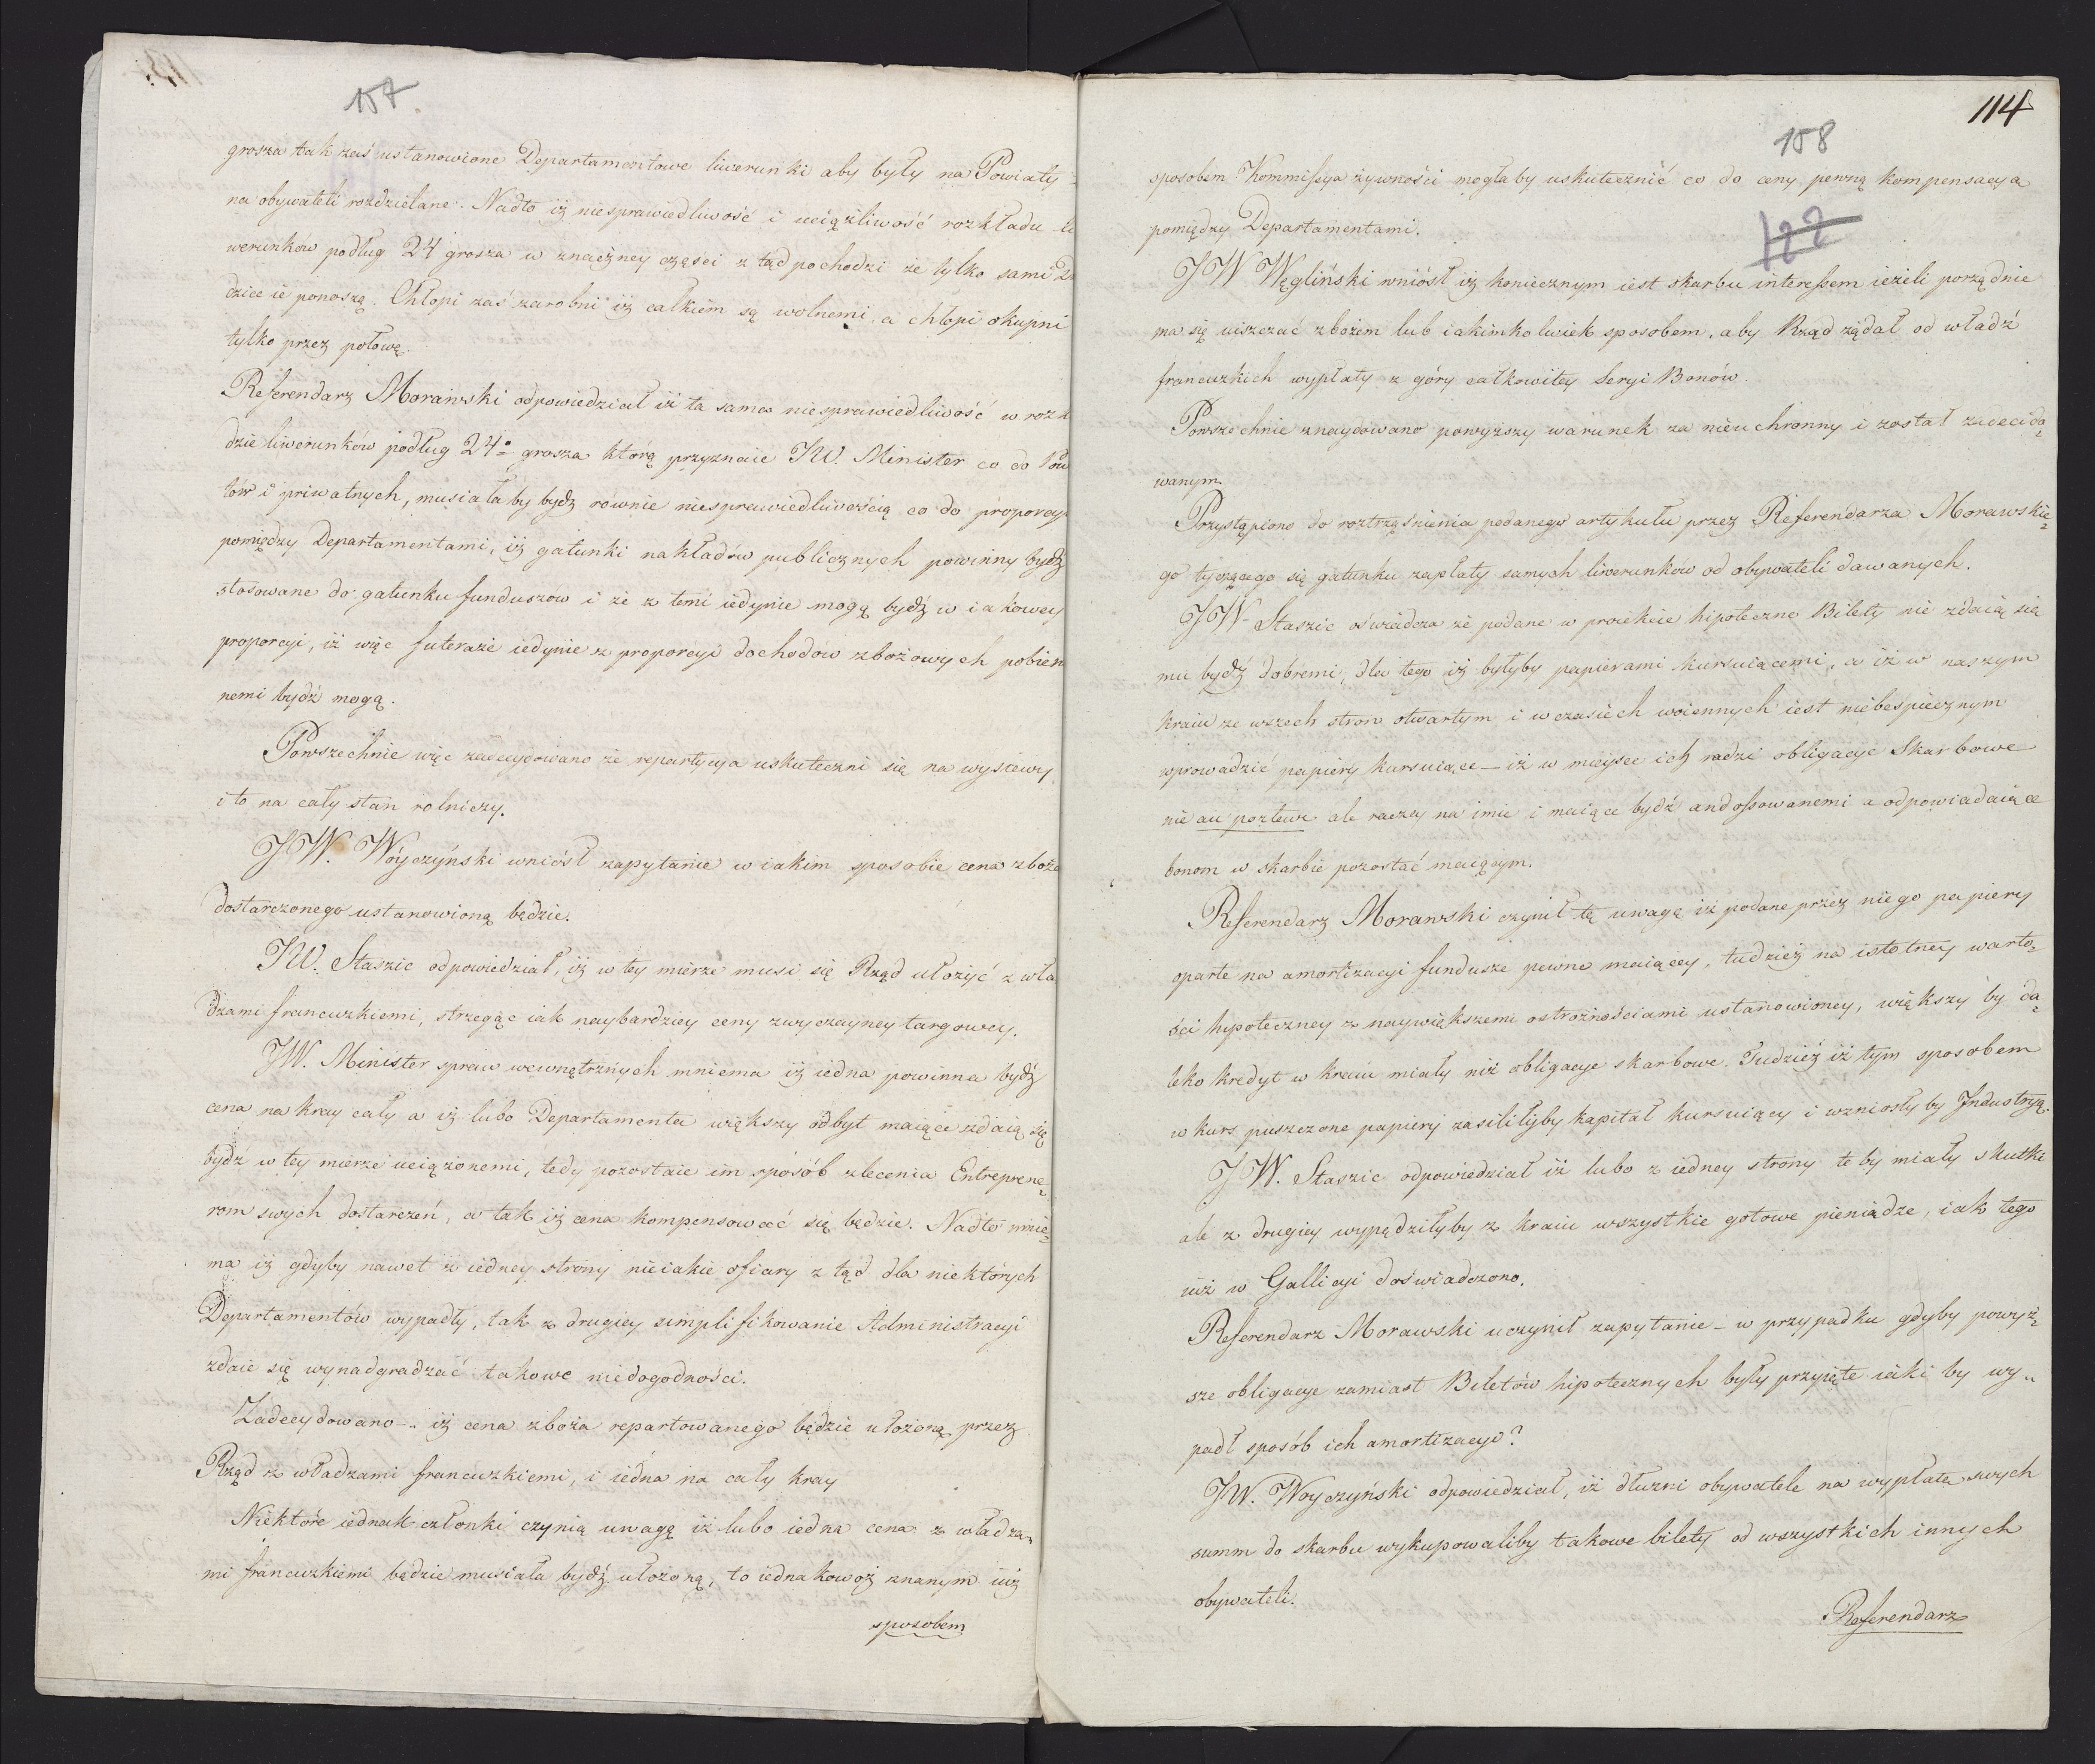 157
grosza tak zaś ustanowione Departamentowe liwerunki aby były na Powiaty
na obywateli rozdzielane. Nadto iż niesprawiedliwość i uciążliwość rozkładu li
werunków podług 24 grosza w znaczney części z tąd pochodzi że tylko sami
dzice ie ponoszą. Chłopi zaś zarobni iż całkiem są wolnemi, a chłopi okupni
tylko przez połowę.
Referendarz Morawski odpowiedział iż ta sama niesprawiedliwość w rozk
dzie liwerunków podług 24º grosza którą przyznaie JW. Minister co do Pow
tów i priwatnych, musiałaby bydź równie niesprawiedliwością co do proporcyi
pomiędzy Departamentami, iż gatunki nakładów publicznych powinny bydź
stosowane do gatunku funduszow i że z temi iedynie mogą bydź w iakowey
proporcyi, iż więc futeraże iedynie z proporcyi dochodów zbożowych pobiera
nemi bydź mogą.
Powszechnie więc zadecydowano że repartycya uskuteczni się na wysiewy
i to na cały stan rolniczy.
JW. Wóyczyński wniósł zapytanie w iakim sposobie cena zboża
dostarczonego ustanowioną będzie.
JW. Staszic odpowiedział, iż w tey mierze musi się Rząd ułożyć z wła
dzami francuzkiemi, strzegąc iak naybardziey ceny zwyczayney targowey.
JW. Minister spraw wewnętrznych mniema iż iedna powinna bydź
cena na kray cały a iż lubo Departamenta większy odbyt maiące zdaią się
bydź w tey mierze uciążonemi, tedy pozostaie im sposób zlecenia Entreprene=
rom swych dostarczeń, a tak iż cena kompensować się będzie. Nadto mnie=
ma iż gdyby nawet z iedney strony nieiakie ofiary z tąd dla niektórych
Departamentów wypadły, tak z drugiey simplifikowanie Administracyi
zdaie się wynadgradzać takowe niedogodności.
Zadecydowano – iż cena zboża repartowanego będzie ułożoną przez
Rząd z władzami francuzkiemi, i iedna na cały kray
Niektóre iednak członki czynią uwagę iż lubo iedna cena z władza„
mi francuzkiemi będzie musiała bydź ułożoną, to iednakowoż znanym iuż
sposobem
114
158
122
sposobem Kommissya żywności mogłaby uskutecznić co do ceny pewną kompensacyą
pomiędzy Departamentami.
JW Węgliński wniósł iż koniecznym iest skarbu interessem ieżeli porządnie
ma się uiszczać zbożem lub iakimkolwiek sposobem, aby Rząd żądał od władź
francuzkich wypłaty z góry całkowitey Seryi Bonów.
Powszechnie znaydowano powyższy warunek za nieuchronny i został zadecido=
wanym.
Przystąpiono do roztrząśnienia podanego artykułu przez Referendarza Morawskie=
go tyczącego się gatunku zapłaty samych liwerunkow od obywateli dawanych.
JW Staszic oświadcza że podane w proiekcie hipoteczne Bilety nie zdaią się
mu bydź dobremi, dla tego iż byłyby papierami kursuiącemi, a iż w naszym
kraiu ze wszech stron otwartym i w czasiech woiennych iest niebespiecznym
wprowadzić papiery kursuiące – iż w mieysce ich radzi obligacye Skarbowe
nie au porteur ale raczey na imie i maiące bydź andossowanemi a odpowiadaiące
bonom w skarbie pozostać maiącym.
Referendarz Morawski czynił tę uwagę iż podane przez niego papiery
oparte na amortizacyi fundusze pewne maiącey, tudzież na istotney warto=
ści hypoteczney z naywiększemi ostrożnościami ustanowioney, większy by da=
leko kredyt w kraiu miały niż obligacye skarbowe. Tudzież iż tym sposobem
w kurs puszczone papiery zasililiby kapitał kursuiący i wzniosły by Industryą.
JW. Staszic odpowiedział iż lubo z iedney strony te by miały skutki
ale z drugiey wypędziłyby z kraiu wszystkie gotowe pieniądze, iak tego
iuż w Gallicyi doświadczono.
Referendarz Morawski uczynił zapytanie – w przypadku gdyby powyż=
sze obligacye zamiast Biletów hipotecznych były przyięte iaki by wy„
padł sposób ich amortizacyi?
JW. Woyczyński odpowiedział, iż dłużni obywatele na wypłatę swych
summ do skarbu wykupowaliby takowe bilety od wszystkich innych
obywateli.
Referendarz